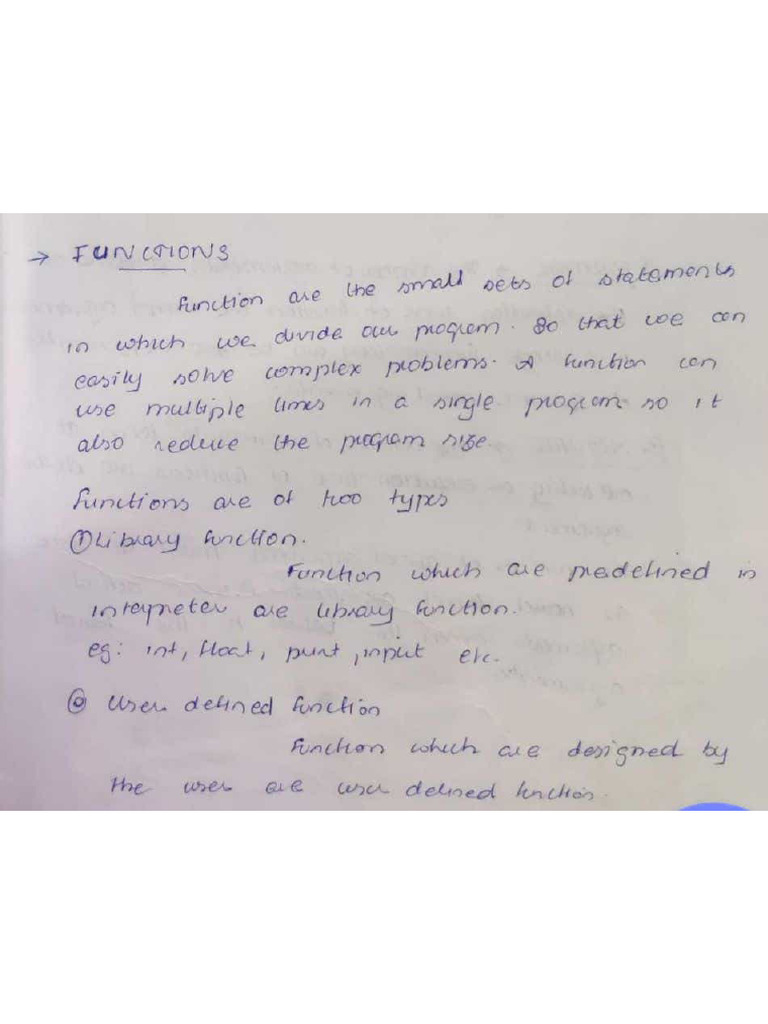 → FUNCTIONS
Function are the small sets of statements
in which we divide our program. So that we can
easily solve complex problems. A function can
use multiple times in a single program so it
also reduce the program size
Functions are of two types
① Library function.
Function which are predefined in
interpreter are library function.
eg: int, float, print, input etc.
② User defined function
Function which are designed by
the user are user defined function.